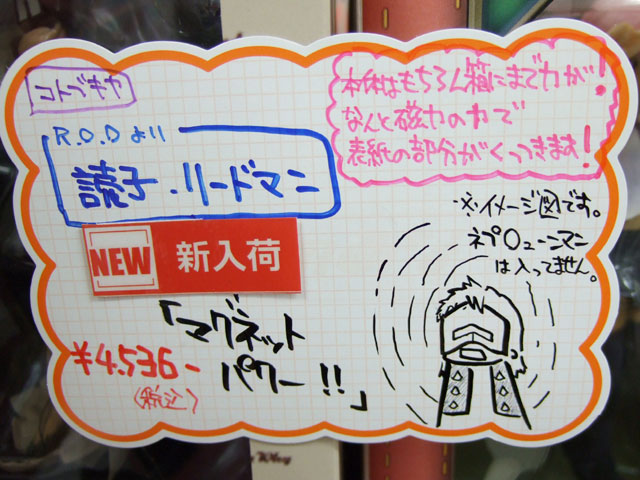 コトブキヤ
R.O.Dより
読子.リードマン
本体はもちろん箱にまで力が!
なんと磁力の力で
表紙の部分がくっつきます!
※イメージ図です。
ネプ○ューンマン
は入ってません。
NEW 新入荷
「マグネット
パワー!!」
¥4.536-
(税込)